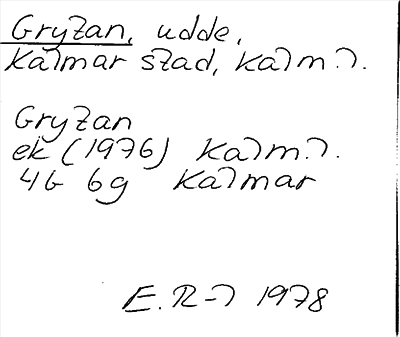 Grytan, udde,
Kalmar stad, Kalm.l.
Grytan
ek (1976) Kalm.l.
4G 6g Kalmar
E.R-l 1978